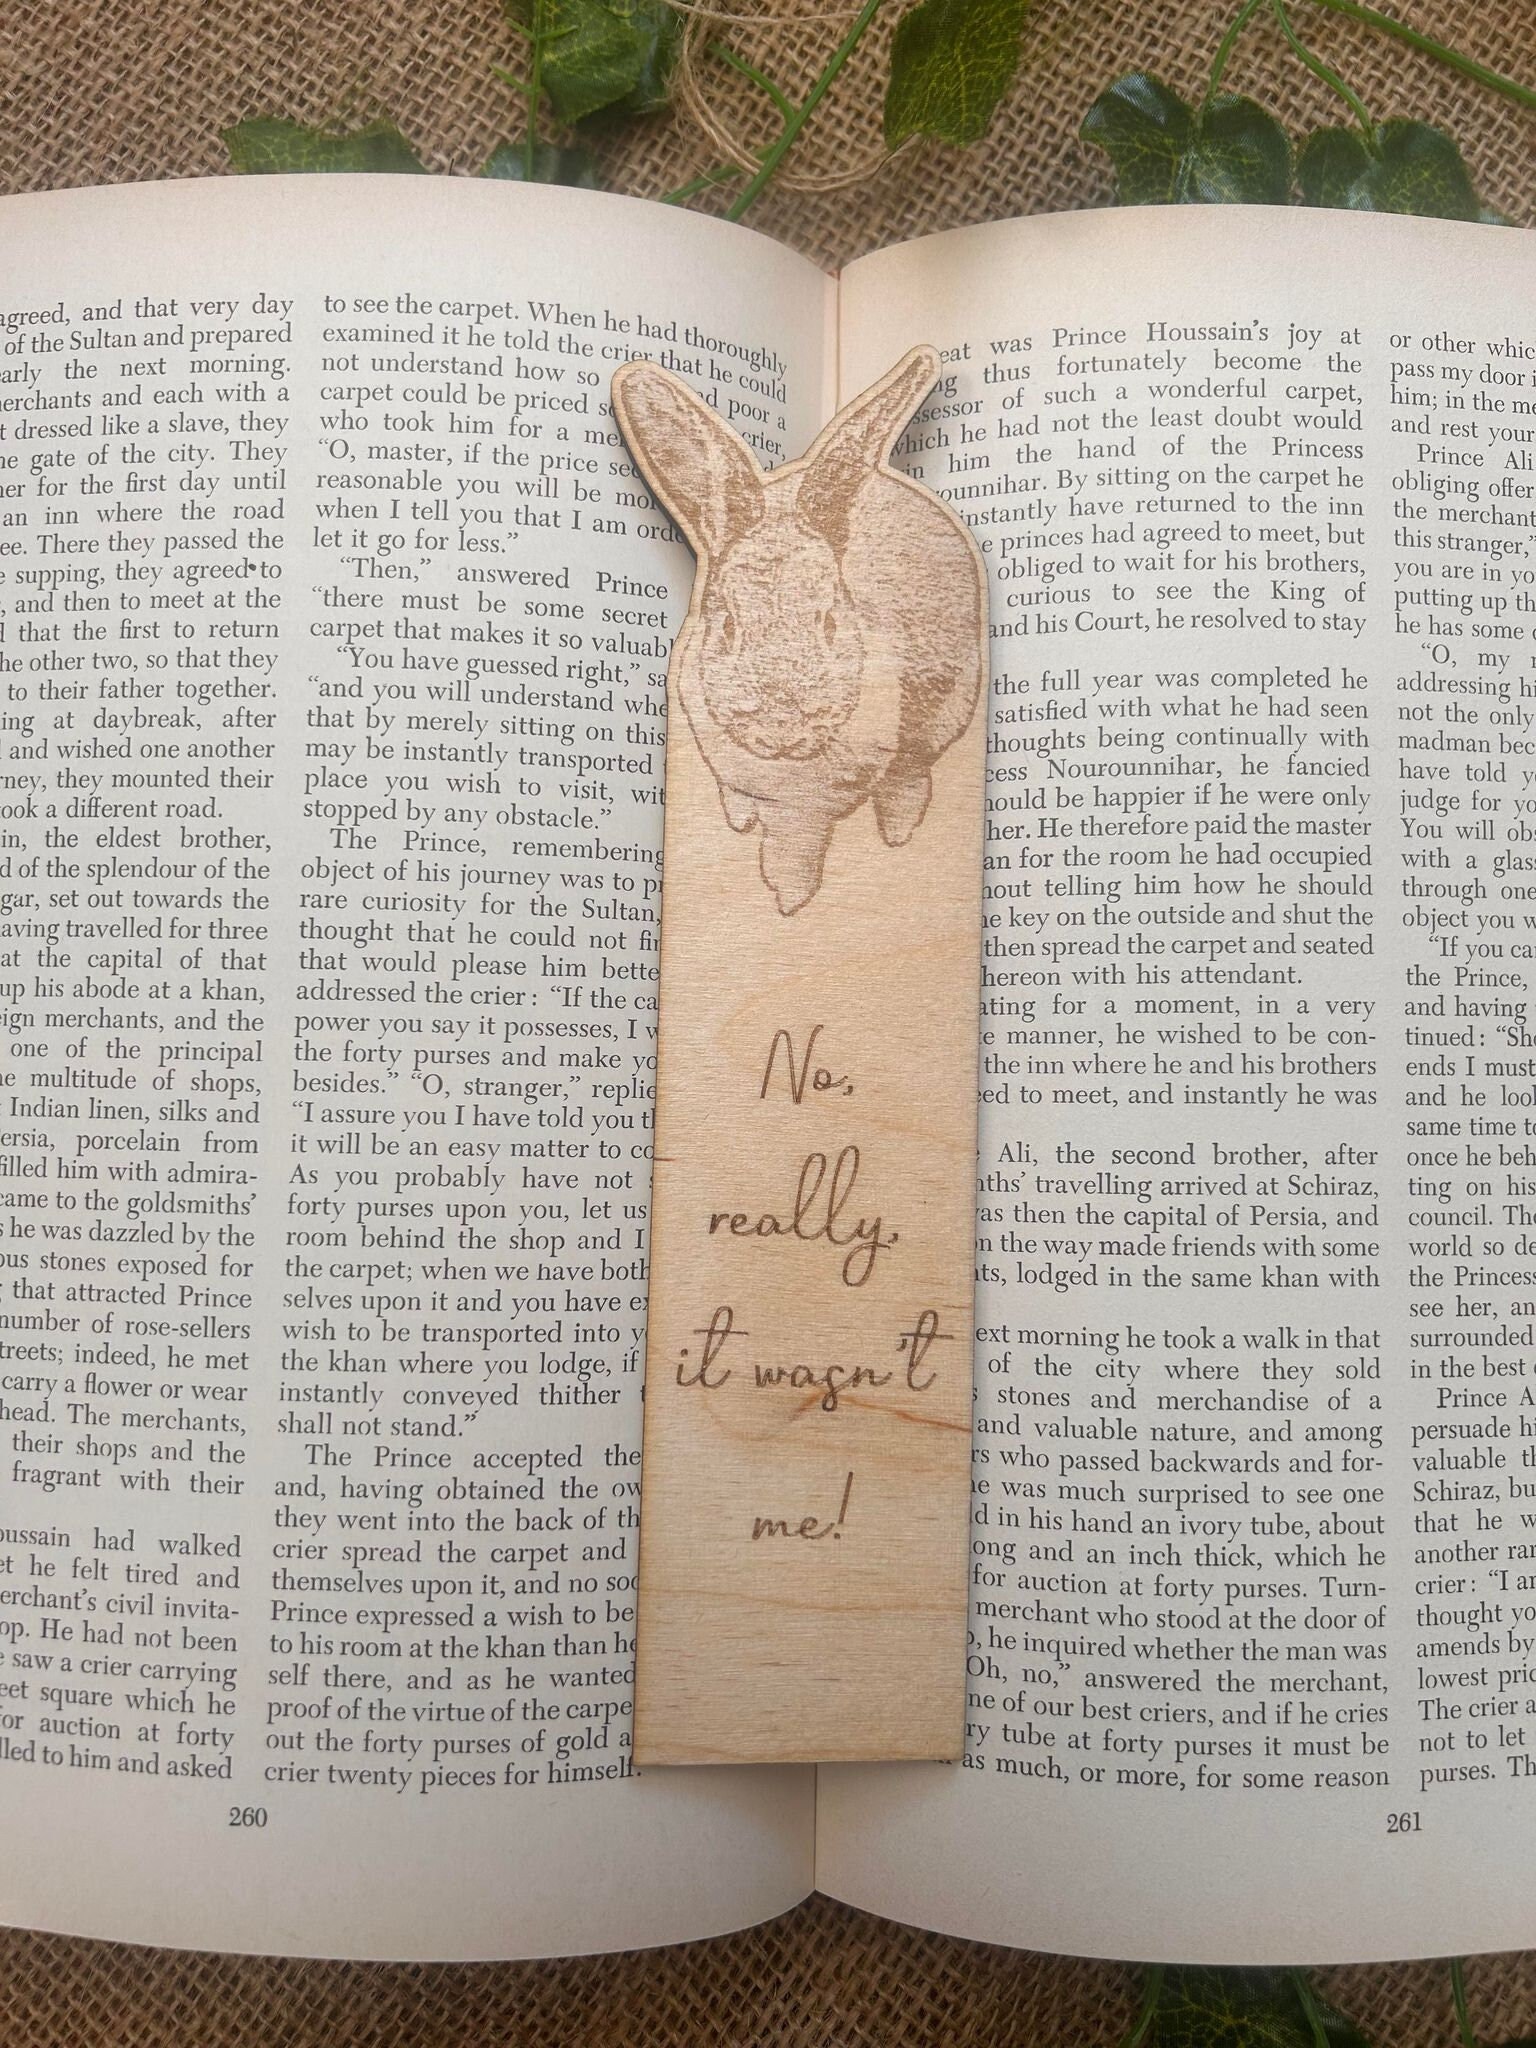 agreed, and that very day
of the Sultan and prepared
early the next morning.
merchants and each with a
dressed like a slave, they
gate of the city. They
for the first day until
an inn where the road
There they passed the
supping, they agreed to
and then to meet at the
that the first to return
the other two, so that they
to their father together.
at daybreak, after
and wished one another
they mounted their
took a different road.
the eldest brother,
of the splendour of the
set out towards the
having travelled for three
at the capital of that
up his abode at a khan,
merchants, and the
one of the principal
multitude of shops,
Indian linen, silks and
porcelain from
filled him with admira-
came to the goldsmiths’
he was dazzled by the
stones exposed for
that attracted Prince
number of rose-sellers
indeed, he met
carry a flower or wear
head. The merchants,
their shops and the
fragrant with their
had walked
he felt tired and
merchant’s civil invita-
He had not been
saw a crier carrying
square which he
for auction at forty
to him and asked
260
to see the carpet. When he had thoroughly
examined it he told the crier that he could
not understand how so
carpet could be priced poor a
who took him for a crier,
“O, master, if the price
reasonable you will be
when I tell you that I am
let it go for less.”
“Then,” answered Prince
“there must be some secret
carpet that makes it so
“You have guessed right,”
“and you will understand
that by merely sitting on this
may be instantly transported
place you wish to visit,
stopped by any obstacle.”
The Prince, remembering
object of his journey was to
rare curiosity for the Sultan,
thought that he could not
that would please him
addressed the crier: “If the
power you say it possesses, I
the forty purses and make
besides.” “O, stranger,”
“I assure you I have told you
it will be an easy matter to
As you probably have not
forty purses upon you, let us
room behind the shop and I
the carpet; when we have
selves upon it and you have
wish to be transported into
the khan where you lodge, if
instantly conveyed thither
shall not stand.”
The Prince accepted the
and, having obtained the
they went into the back of
crier spread the carpet and
themselves upon it, and no
Prince expressed a wish to be
to his room at the khan than
self there, and as he wanted
proof of the virtue of the
out the forty purses of gold
crier twenty pieces for himself.
No,
really,
it wasn't
me!
was Prince Houssain’s joy at
thus fortunately become the
of such a wonderful carpet,
which he had not the least doubt would
him the hand of the Princess
By sitting on the carpet he
instantly have returned to the inn
princes had agreed to meet, but
obliged to wait for his brothers,
curious to see the King of
and his Court, he resolved to stay
the full year was completed he
satisfied with what he had seen
thoughts being continually with
Nourounnihar, he fancied
be happier if he were only
her. He therefore paid the master
for the room he had occupied
telling him how he should
key on the outside and shut the
then spread the carpet and seated
thereon with his attendant.
for a moment, in a very
manner, he wished to be con-
the inn where he and his brothers
to meet, and instantly he was
Ali, the second brother, after
travelling arrived at Schiraz,
was then the capital of Persia, and
on the way made friends with some
lodged in the same khan with
morning he took a walk in that
of the city where they sold
stones and merchandise of a
and valuable nature, and among
who passed backwards and for-
he was much surprised to see one
in his hand an ivory tube, about
long and an inch thick, which he
for auction at forty purses. Turn-
merchant who stood at the door of
he inquired whether the man was
“Oh, no,” answered the merchant,
one of our best criers, and if he cries
tube at forty purses it must be
as much, or more, for some reason
or other
pass my door
him; in the
and rest your
Prince Ali
obliging offer
the merchant
this stranger,”
you are in
putting up
he has some
“O, my
addressing
not the only
madman
have told
judge for
You will
with a
through one
object you
“If you
the Prince,
and having
tinued:
ends I must
and he
same time
once he
ting on his
council.
world so
the Princess
see her,
surrounded
in the best
Prince
persuade
valuable
Schiraz, but
that he
another
crier: “I
thought
amends by
lowest
The crier
not to let
purses.
261